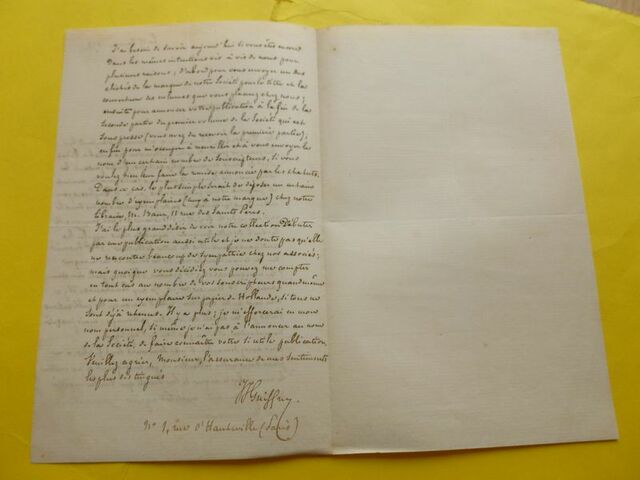 J'ai besoin de savoir aujourd'hui si vous êtes encore
Dans les mêmes intentions vis à vis de nous pour
plusieurs raisons; d'abord pour vous envoyer un des
clichés de la marque de notre Société pour le titre et la
couverture des volumes que vous placez chez nous;
ensuite pour annoncer votre publication à la fin de la
seconde partie du premier volume de la Société qui est
sous presse (vous avez dû recevoir la première partie);
enfin pour m'occuper à recueillir et à vous envoyer les
nom d'un certain nombre de souscripteurs, si vous
voulez bien leur faire la remise annoncée par les statuts.
Dans ce cas, le plus simple serait de déposer un certain
nombre d'exemplaires (mis à notre marque) chez notre
libraire, Mr. Baur, 11 rue des Saints Pères.
J'ai le plus grand désir de voir notre collection débuter
par une publication aussi utile et je ne doute pas qu'elle
ne rencontre beaucoup de sympathie chez nos associés;
mais quoique vous décidiez vous pouvez me compter
en tout cas au nombre de vos souscripteurs quand même
et pour un exemplaire sur papier de Hollande, si tous ne
sont déjà retenus. Il y a plus; je m'efforcerai en mon
nom personnel, si même je n'ai pas à l'annoncer au nom
de la Société, de faire connaître votre si utile publication.
Veuillez agréer, Monsieur, l'assurance de mes sentiments
les plus distingués
JJ Guiffrey.
No 1, rue d'Hauteville (Paris)